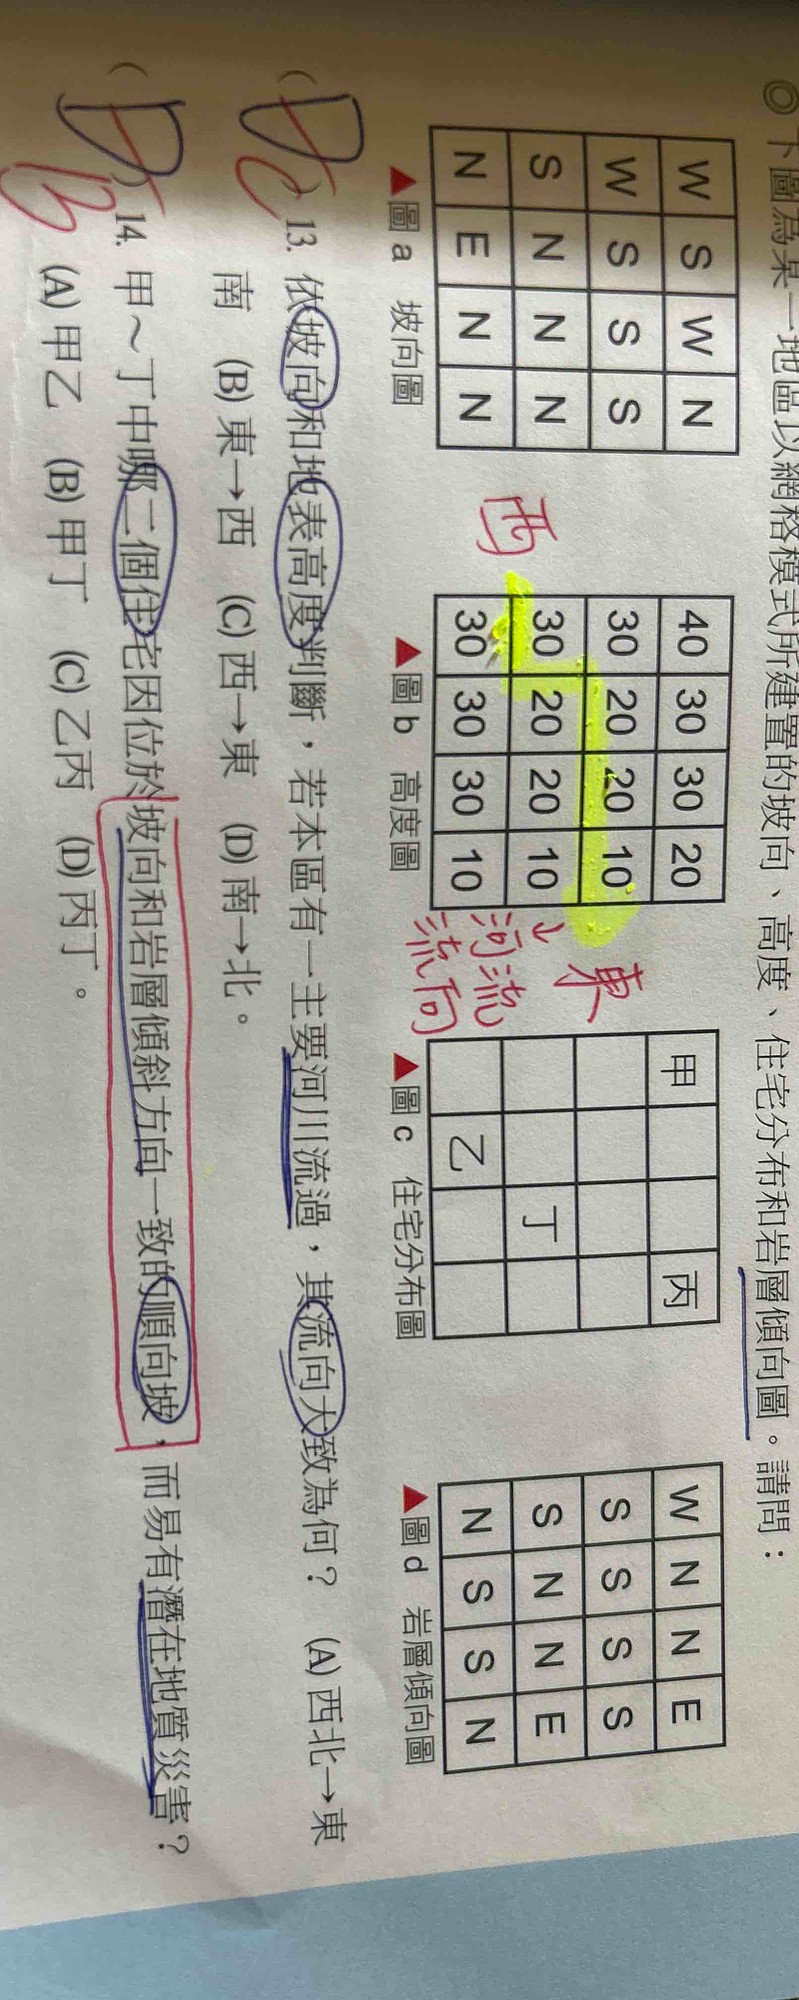 ◎下圖為某一地區以網格模式所建置的坡向、高度、住宅分布和岩層傾向圖。請問：
W S W N
W S S S
S N N N
N E N N
▲圖a 坡向圖
40 30 30 20
30 20 20 10
30 20 20 10
30 30 30 10
▲圖b 高度圖
西
東
↓
河流
流向
甲 丙
丁
乙
▲圖c 住宅分布圖
W N N E
S S S S
S N N E
N S S N
▲圖d 岩層傾向圖
( D C )13. 依坡向和地表高度判斷，若本區有一主要河川流過，其流向大致為何？ (A)西北→東
南 (B)東→西 (C)西→東 (D)南→北。
( D B )14. 甲～丁中哪二個住宅因位於坡向和岩層傾斜方向一致的順向坡，而易有潛在地質災害？
(A)甲乙 (B)甲丁 (C)乙丙 (D)丙丁。